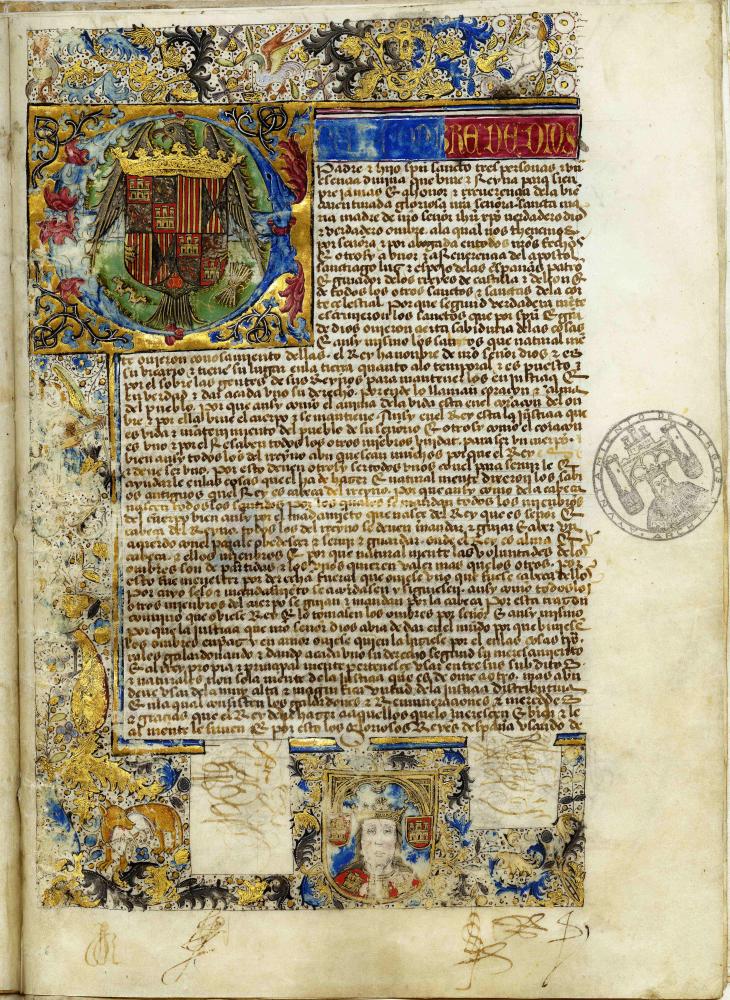 EL NOMBRE DE DIOS
Padre & hijo spu sancto tres personas & vn
esençia diuina que biue & Reyna para sien
pre jamas E a honor & rreuerençia dela bie
auenturada gloriosa nra señora santa ma
ria madre de nro señor ihu xpo verdadero dios
& verdadero onbre ala qual nos thenemos
por señora & por abogada en todos nros fechos
E otrosy a honor & a Reuerençia del apostol
santiago luz & espejo delas españas patro
& guiador de los rreyes de castilla & de leon E
de todos los otros sanctos & sanctas dela cor
te çelestial Por que segund verdadera mente
escriuieron los sanctos que por spu & graçia
de dios ouieron açerca sabiduria delas cosas
E ansy mismo los sabios que natural me
ouieron conosçimiento dellas el Rey ha nonbre de nro señor dios & es
su vicario & tiene su lugar enla tierra quanto alo tenporal & es puesto
por el sobre las gentes de sus Reynos para mantener los en justiçia E
en verdad & dar a cada vno su derecho por ende lo llaman coraçon & alma
del pueblo Por que ansy como el anima dela vida esta enel coraçon del on
bre & por ella biue el cuerpo & se mantiene Ansy enel Rey esta la justiçia que
es vida & mantenimiento del pueblo de su señorio E otrosy como el coraçon
es vno & por el Resçiben todos los otros mienbros vnidat para ser vn cuerpo
bien ansy todos los del rreyno avn que sean muchos por que el Rey
& deue ser vno Por esto deuen otrosy ser todos vnos conel para seruir le E
ayudarle enlas cosas que el ha de hazer E natural mente dixeron los sabi
os antiguos quel Rey es cabeça del rreyno Por que ansy como dela cabeça
nasçen todos los sentidos por los quales se mandan todos los mienbros
del cuerpo bien ansy por el mandamiento que nasçe del Rey que es señor E
cabeça del Reyno todos los del rreyno se deuen mandar & guiar & aver vn
acuerdo conel para le obedesçer & seruir & guardar onde el Rey es alma E
cabeça & ellos mienbros E por que natural mente las voluntades delos
onbres son departidas & los vnos quieren valer mas que los otros Por
esto fue menester por derecha fuerça que ouiese vno que fuese cabeça dellos
Por cuyo seso & mandamiento se acordasen & siguiesen ansy como todos los
otros mienbros del cuerpo se guian & mandan por la cabeça Por esta rrazon
conuino que obiese Rey E lo tomasen los onbres por señor E ansy mismo
por que la justiçia que nro señor dios abia de dar enel mundo por que biuiese
los onbres en paz & en amor ouiese quien la hiziese por el enlas cosas ten
porales galardonando & dando a cada vno su derecho segund su meresçimiento
E al Rey propia & prinçipal mente pertenesçe vsar entre sus subditos E
& naturales non sola mente dela justiçia que es de vno a otro mas avn
deue vsar dela muy alta & magnifica virtud dela justiçia distributiua
E enla qual consisten los galardones & Remuneraçiones & merçedes
& graçias que el Rey deue hazer a aquellos que lo meresçen E bien & le
al mente le siruen E por esto los gloriosos Reyes despaña vsando de
AYUNTAMIENTO DE BURGOS